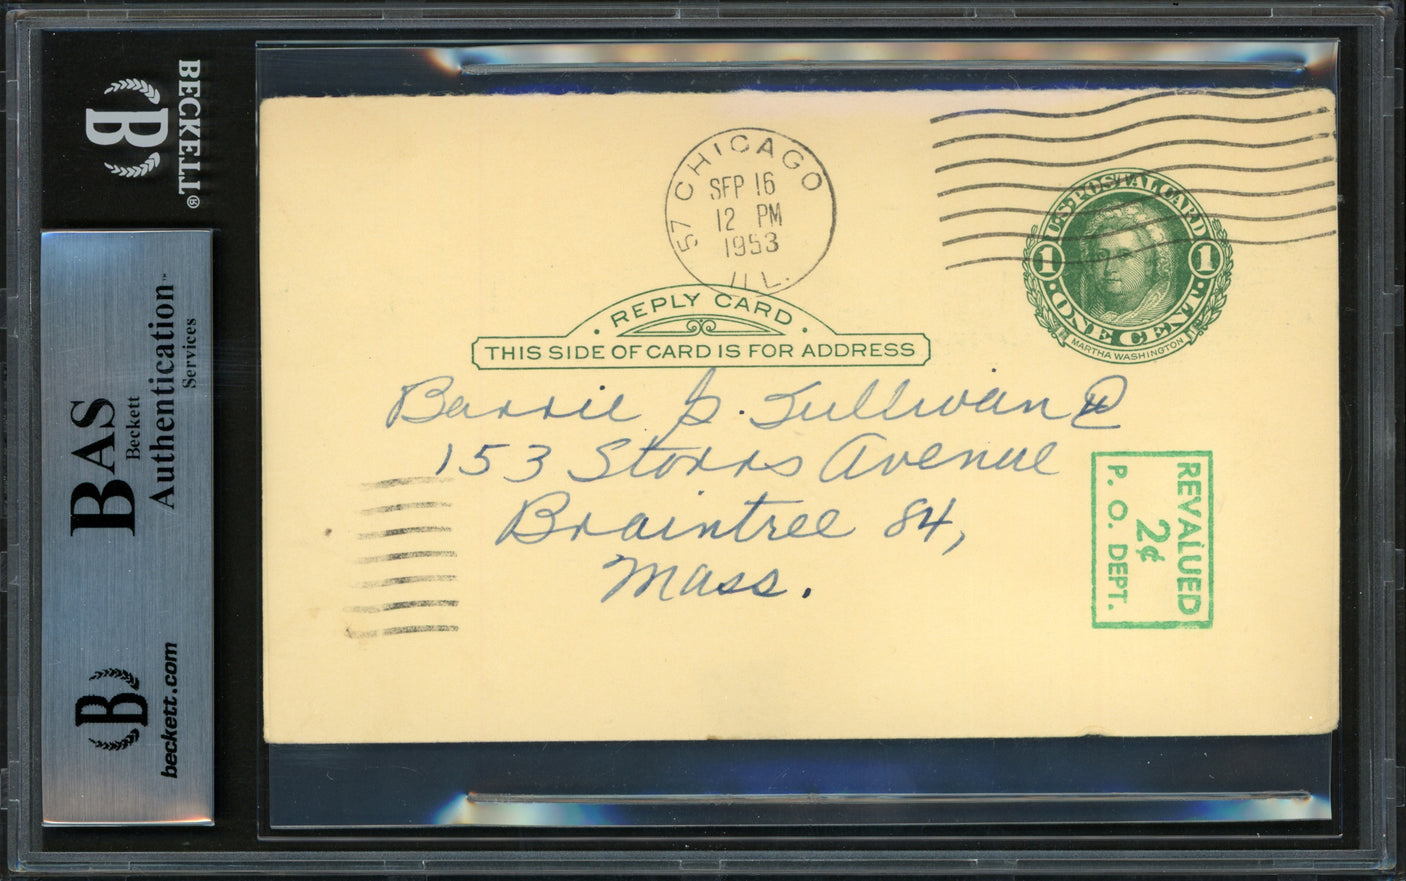 BECKETT®
B
BAS
Beckett
Authentication™
Services
B
beckett.com
57 CHICAGO
SEP 16
12 PM
1953
ILL.
U.S. POSTAL CARD
1 1
· ONE CENT ·
MARTHA WASHINGTON
· REPLY CARD ·
THIS SIDE OF CARD IS FOR ADDRESS
Barrie G. Sullivan
153 Storrs Avenue
Braintree 84,
Mass.
REVALUED
2¢
P. O. DEPT.